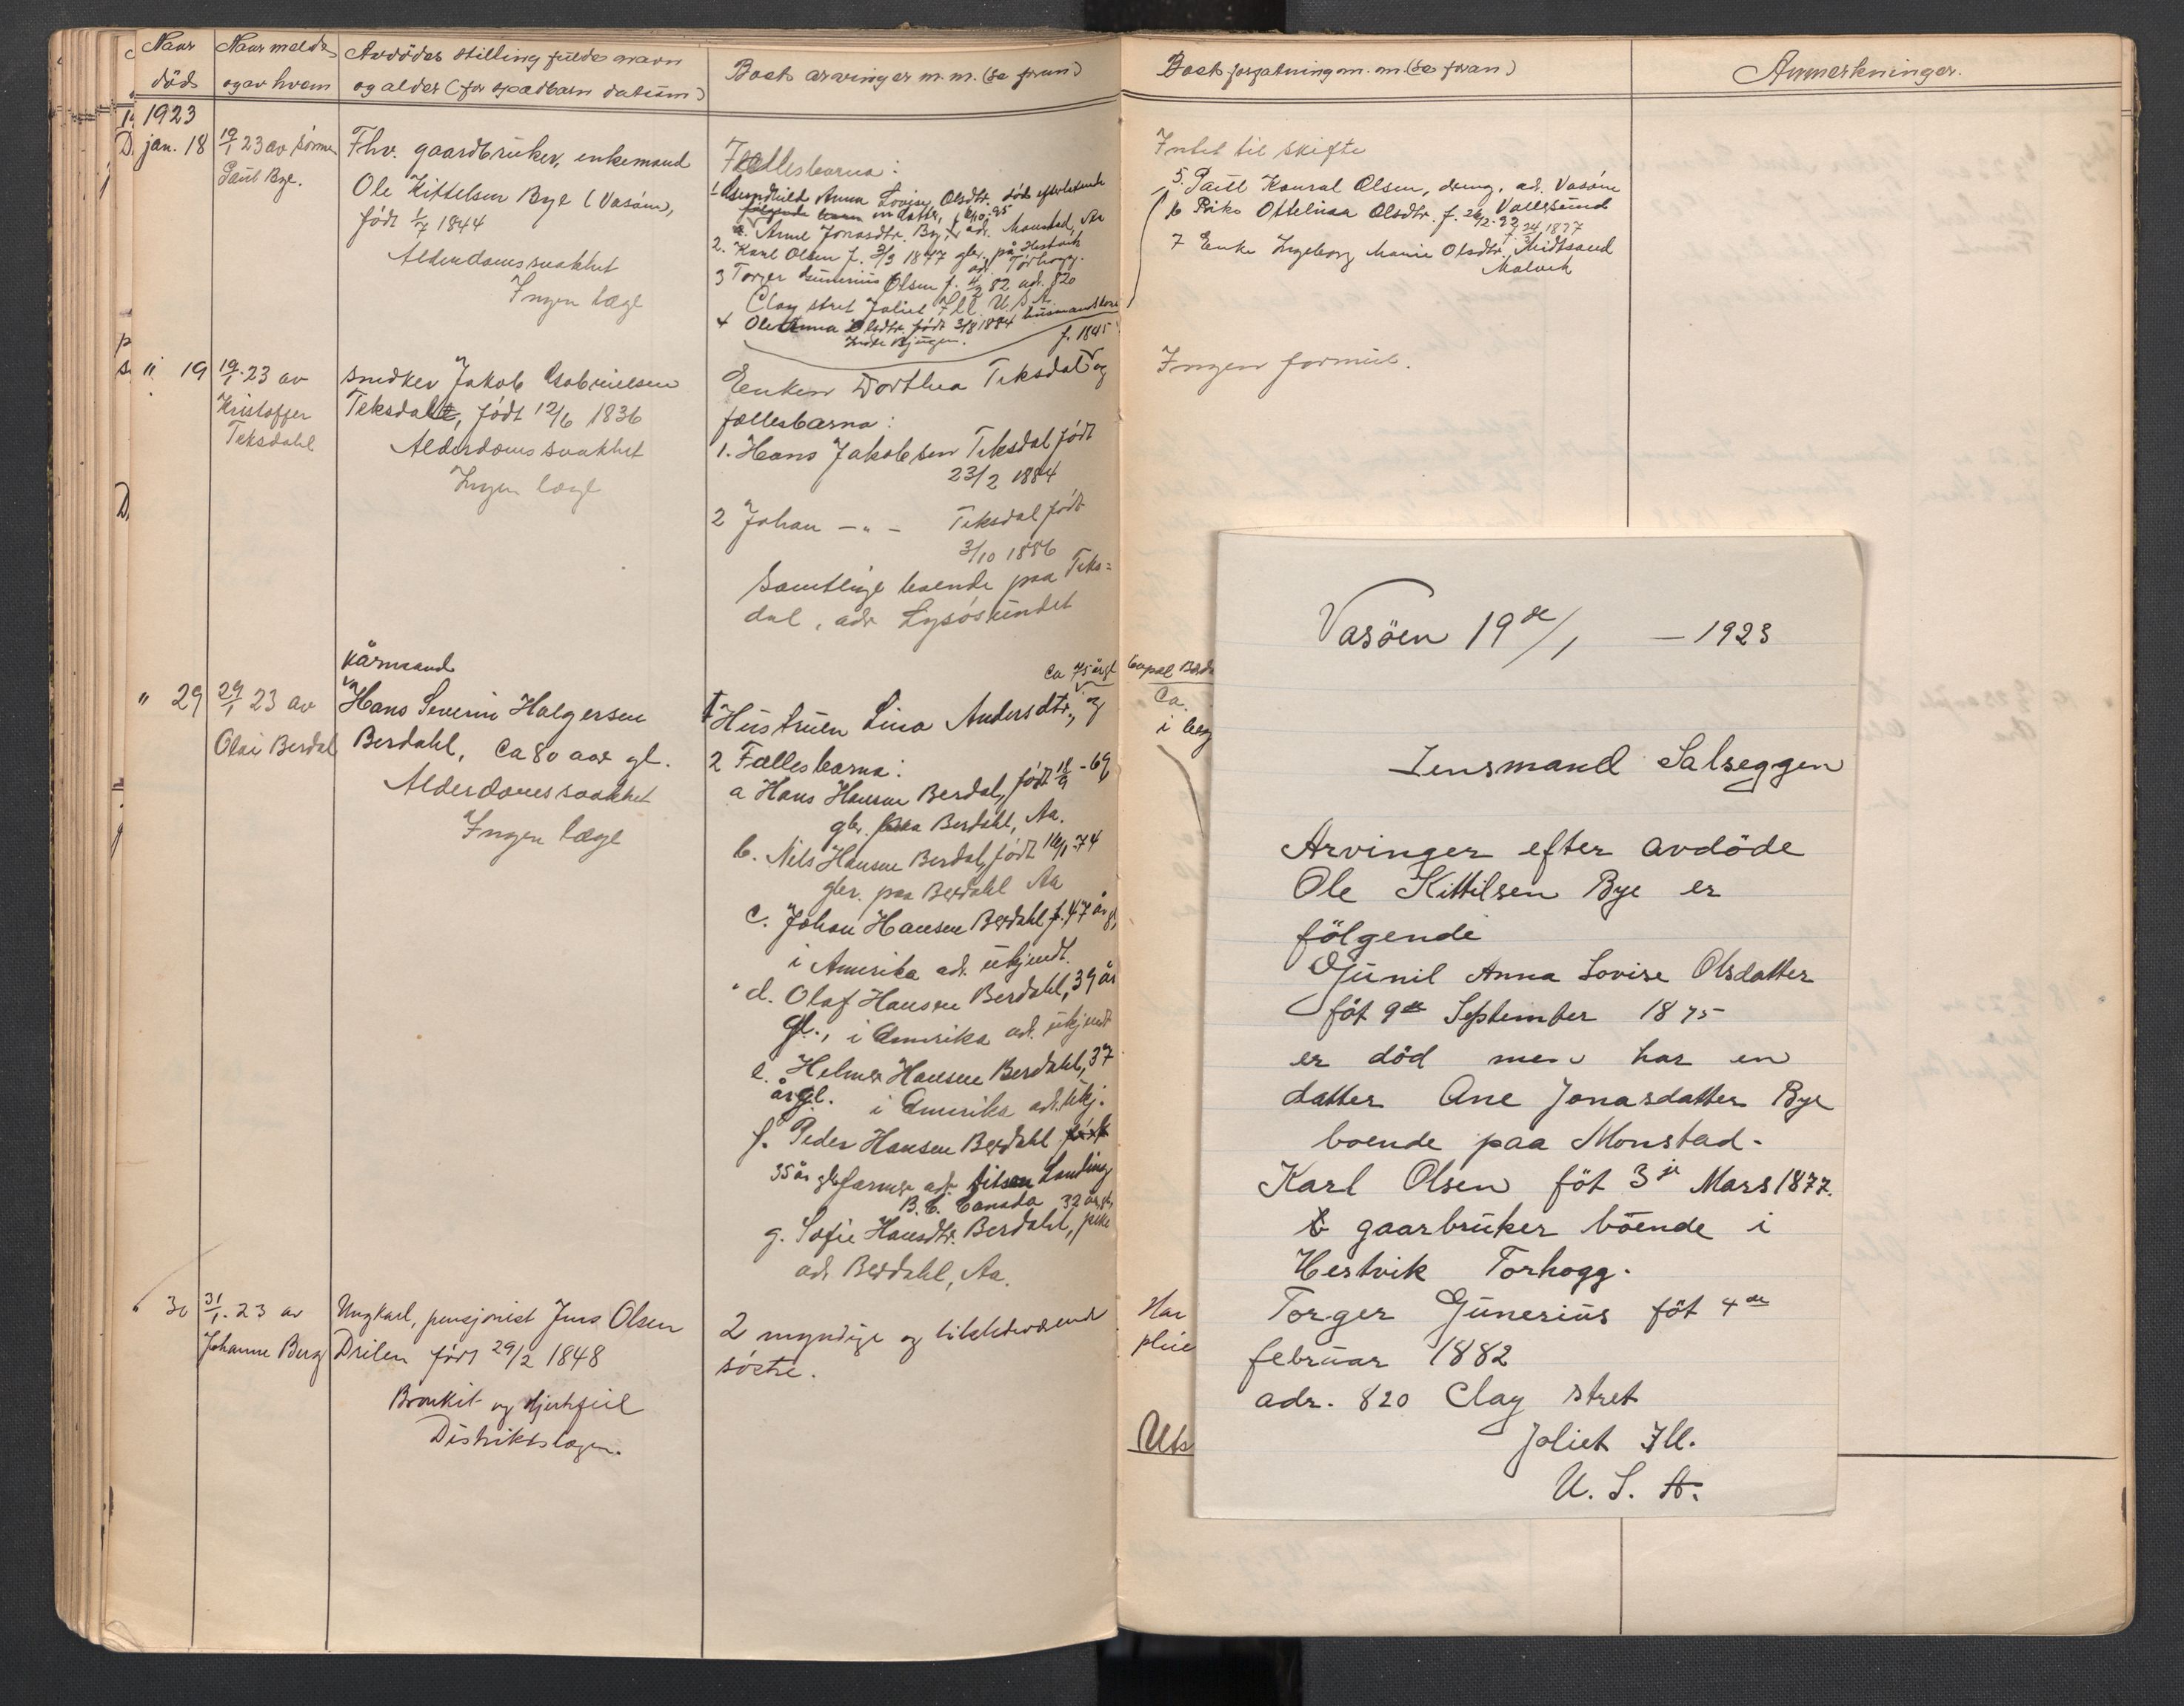 Naar
død
Naar meldt
og av hvem
Avdødes stilling fulde navn
og alder (for spædbarn datum)
Boets arvinger m.m. (se foran)
Boets forfatning m.m. (se foran)
Anmerkninger.
1923
jan. 18
19/1 23 av sønnen
Paul Bye.
Fhv. gaardbruker, enkemand
Ole Kittelsen Bye (Vasøen),
født 1/7 1844
Alderdomssvakhet
Ingen læge
Fællesbarna:
1 Anna Lovise Olsdtr. død efterlatende
følgende barn en datter,
a. Anne Jonasdtr. Bye, adr. Monstad, Aa
2. Karl Olsen f. 3/3 1877 gbr. på Hestvik
ad. Tørhogg.
3 Torger Gunerius Olsen f. 4/2 82 ad. 820
Clay stret Joliet Ill. U.S.A.
4 Oleanna Olsdtr. født 3/8 1884 husmandskone
f. 1845
Intet til skifte
5. Paul Konral Olsen, dreng, ad. Vasøen
Vallersund
6 Pike Ottelina Olsdtr. f. 26/2.
7 Enke Ingeborg Marie Olsdtr. Midtsand
Malvik
" 19
19/1 23 av
Kristoffer
Teksdahl
Snedker Jakob Gabrielsen
Teksdal, født 12/6 1836
Alderdomssvakhet
Ingen læge
Enken Dorthea Teksdal og
fællesbarna:
1. Hans Jakobsen Teksdal født
23/2 1884
2 Johan — " — Teksdal født
3/10 1886
Samtlige boende paa Teks=
dal, adr Lysøsundet
Ingen formue.
" 29
29/1 23 av
Olai Berdal
kårmand
Hans Severin Halgersen
Berdahl, Ca 80 aar gl.
Alderdomssvakhet
Ingen læge
ca 75 år gl
Hustruen Lina Andersdtr., og
2 Fællesbarna:
a Hans Hansen Berdal, født 18/9 - 69
gbr. paa Berdahl, Aa.
b. Nils Hansen Berdal, født 16/1 - 74
gbr. paa Berdahl Aa
c. Johan Hansen Berdahl f. 47 år gl,
i Amerika adr. ukjendt.
d. Olaf Hansen Berdahl, 39 år
gl., i Amerika ad. ukjendt
e. Helmer Hansen Berdahl, 37
år gl. i Amerika adr. ukj.
f. Peder Hansen Berdahl født
35 år gl farmer adr. Landing
B. C. Canada 32 år gl,
g. Sofie Hansdtr. Berdahl, pike
adr Berdahl, Aa.
Ca.
i
" 30
31/1. 23 av
Johanne Berg
Ungkarl, pensjonist Jens Olsen
Drilen født 29/2 1848
Bronkit og hjertefeil
Distriktslægen.
2 myndige og tilstedeværende
søstre.
Har
Uts
Vasøen 19de/1 — 1923
Lensmand Salseggen
Arvinger efter avdöde
Ole Kittilsen Bye er
fölgende
Gunil Anna Lovise Olsdatter
föt 9de September 1875
er död men har en
datter Ane Jonasdatter Bye
boende paa Monstad.
Karl Olsen föt 3je Mars 1877.
gaarbruker böende i
Hestvik Torhogg.
Torger Gunerius föt 4de
februar 1882
adr. 820 Clay stret
Joliet Ill.
U. S. A.